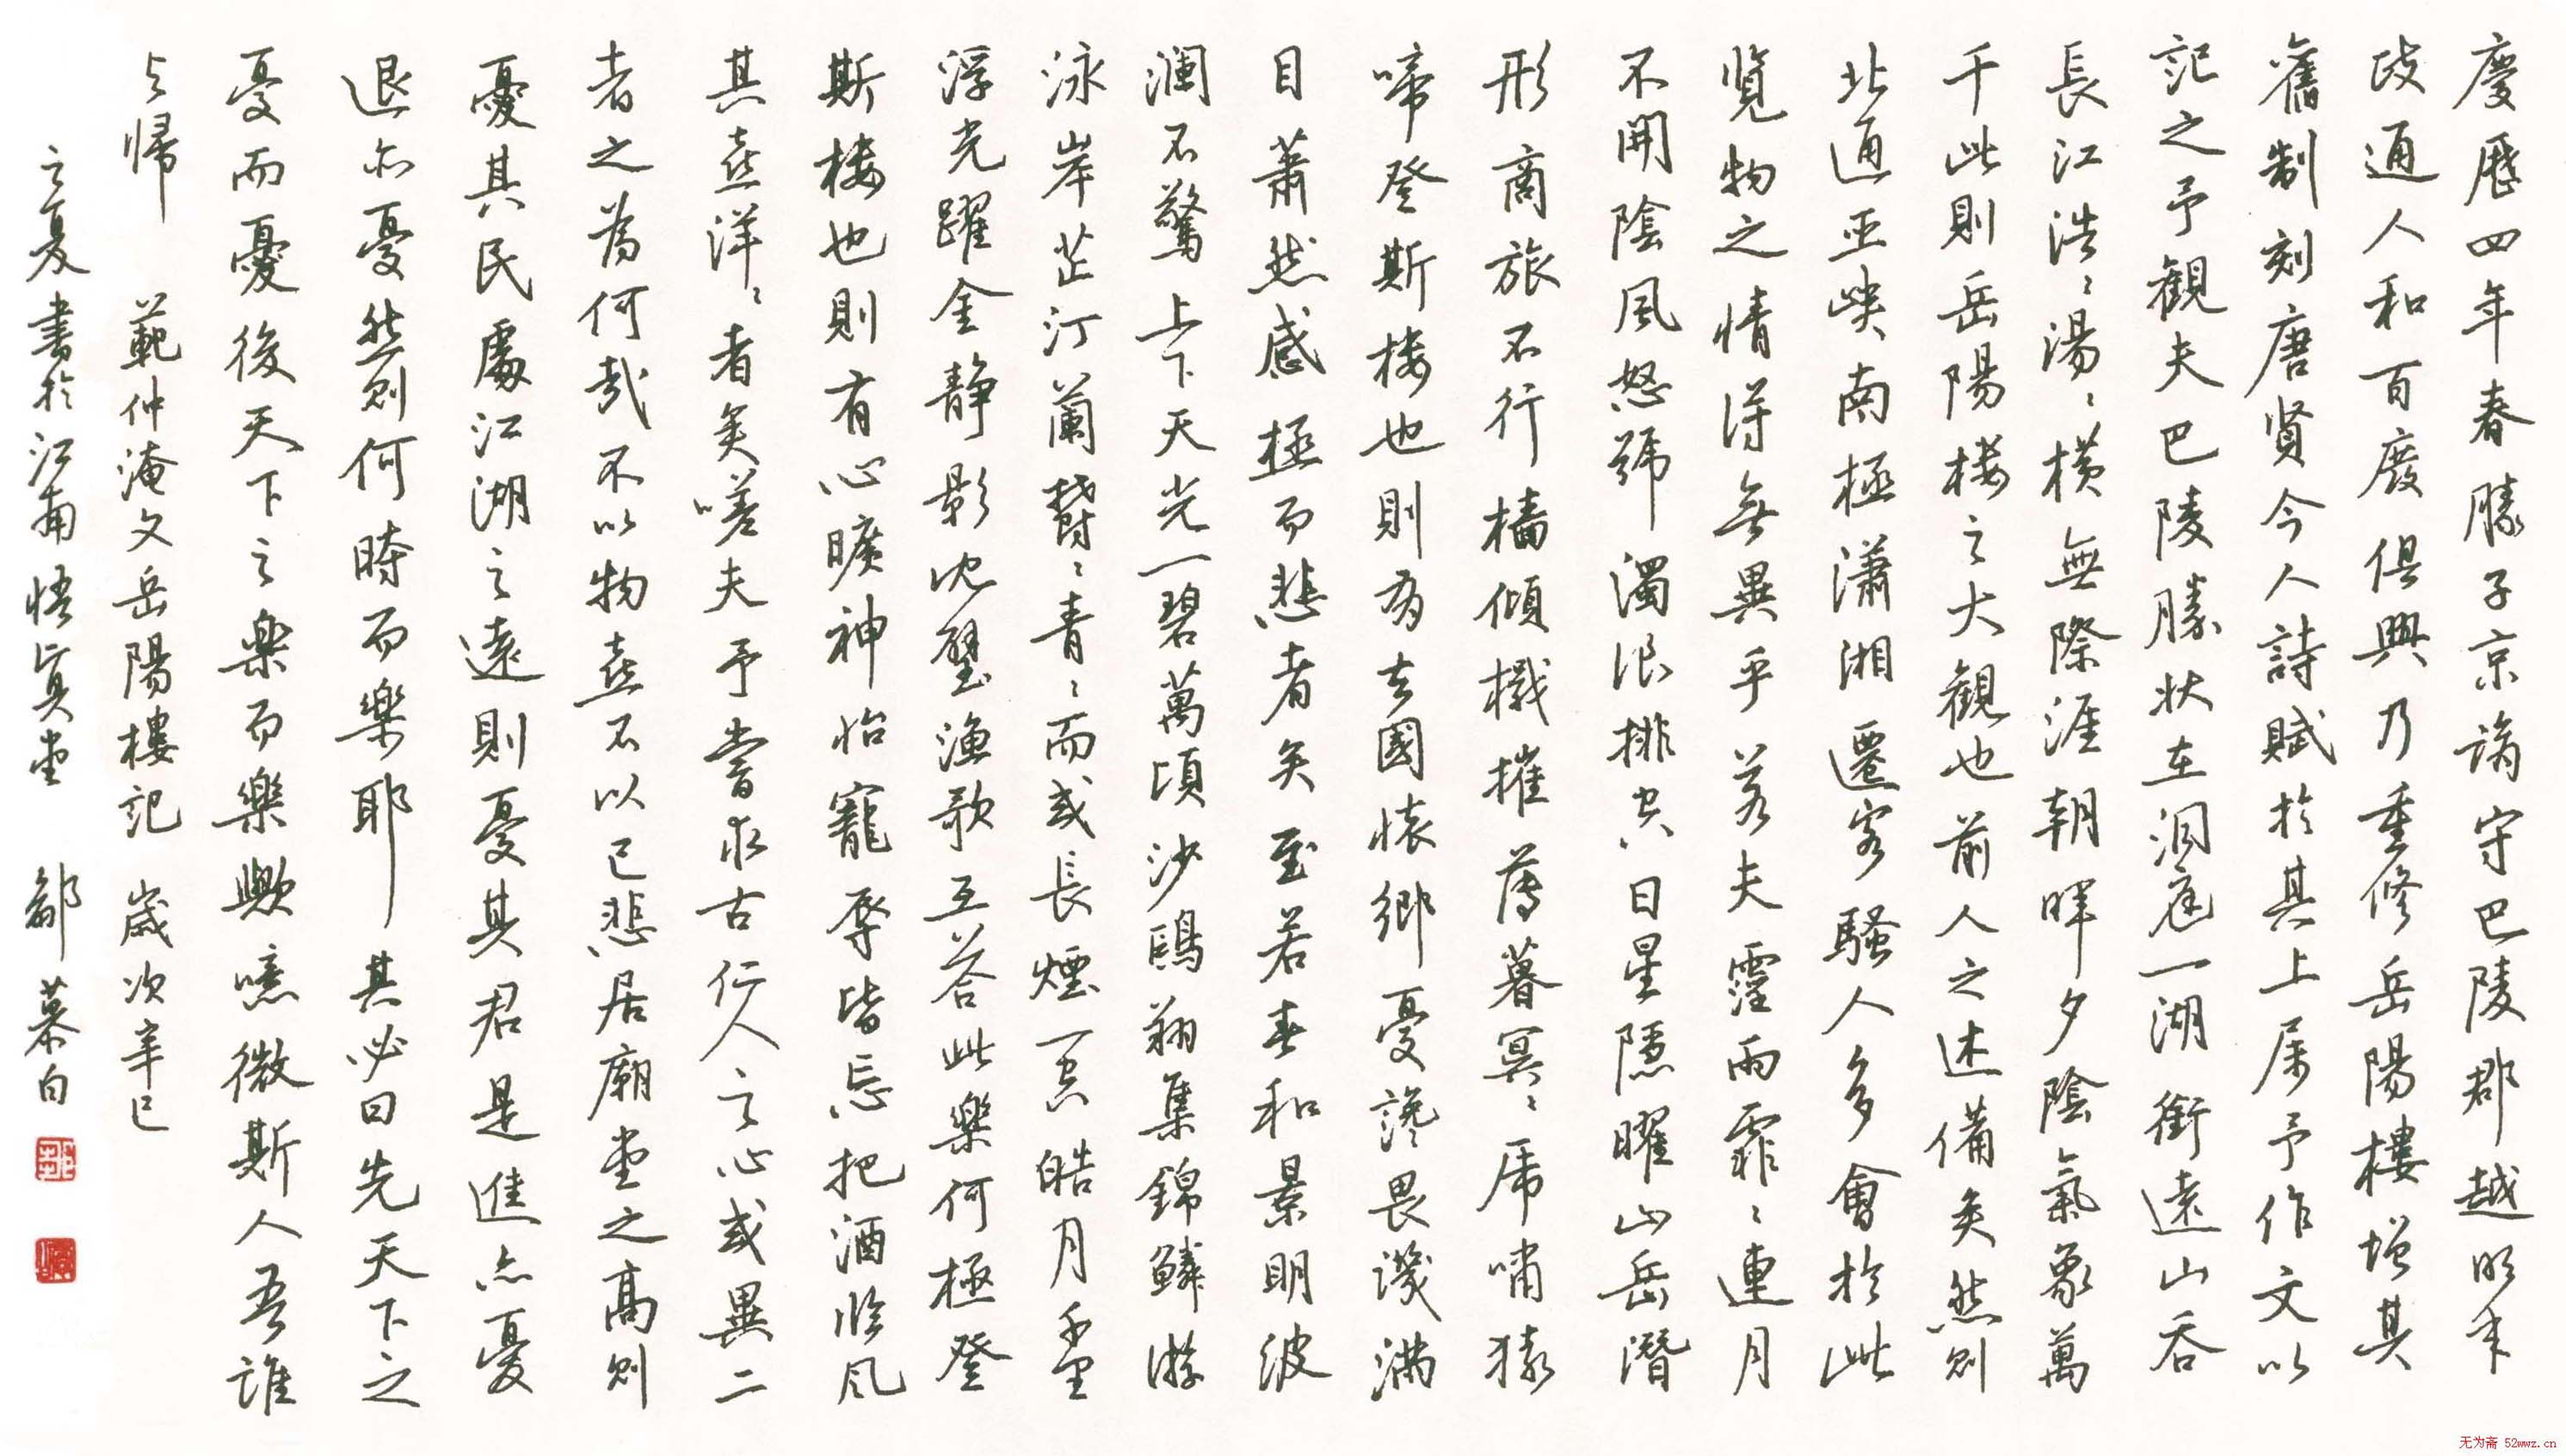 慶歷四年春滕子京謫守巴陵郡越明年
政通人和百廢俱興乃重修岳陽樓增其
舊制刻唐賢今人詩賦於其上属予作文以
記之予觀夫巴陵勝狀在洞庭一湖銜遠山吞
長江浩〻湯〻橫無際涯朝暉夕陰氣象萬
千此則岳陽楼之大觀也前人之述備矣然則
北通巫峽南極瀟湘遷客騷人多會於此
覽物之情得無異乎若夫霪雨霏〻連月
不開陰風怒號濁浪排空日星隱曜山岳潛
形商旅不行檣傾檝摧薄暮冥〻虎嘯猿
啼登斯楼也則有去國懷鄉憂讒畏譏满
目蕭然感極而悲者矣至若春和景明波
澜不驚上下天光一碧萬頃沙鷗翔集錦鱗游
泳岸芷汀蘭鬱〻青〻而或長煙一空皓月千里
浮光躍金静影沈璧漁歌互答此樂何極登
斯楼也則有心曠神怡寵辱皆忘把酒临风
其喜洋〻者矣嗟夫予嘗求古仁人之心或異二
者之為何哉不以物喜不以己悲居廟堂之高則
憂其民處江湖之遠則憂其君是進亦憂
退亦憂然則何時而樂耶其必曰先天下之
憂而憂後天下之樂而樂歟噫微斯人吾誰
与歸 範仲淹文岳陽樓記 歲次辛巳
立夏書於江南悟真堂 郗慕白
无为斋 52wwz.cn